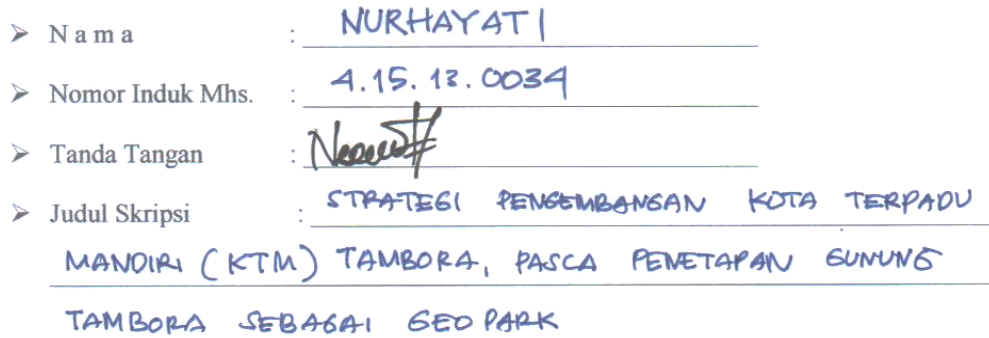 ➢ N a m a : NURHAYATI
➢ Nomor Induk Mhs. : 4.15.13.0034
➢ Tanda Tangan :
➢ Judul Skripsi : STRATEGI PENGEMBANGAN KOTA TERPADU
MANDIRI (KTM) TAMBORA, PASCA PENETAPAN GUNUNG
TAMBORA SEBAGAI GEOPARK